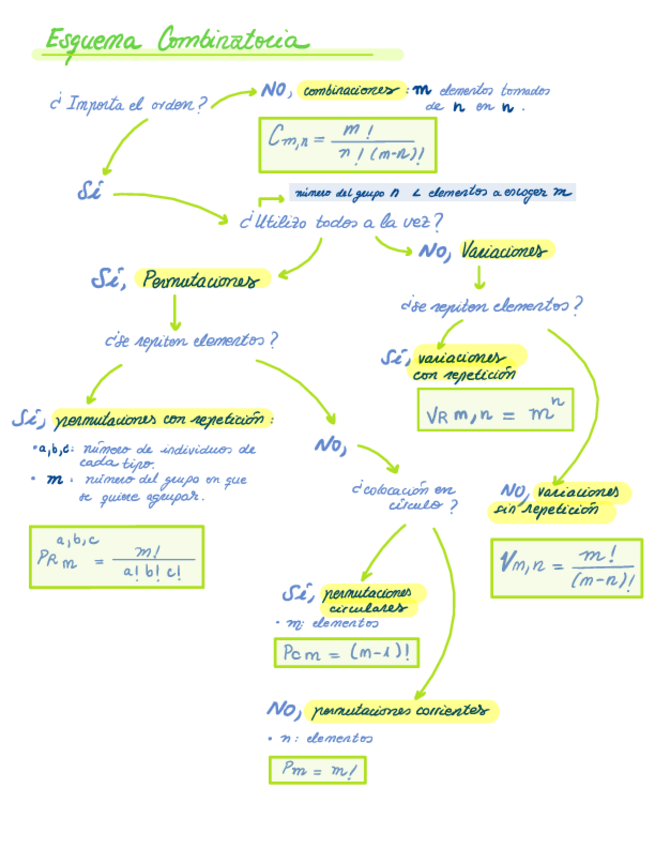 Esquema Combinatoria
¿Importa el orden?
NO, combinaciones: m elementos tomados
de n en n.
C m,n = m! / n! (m-n)!
Sí
número del grupo n < elementos a escoger m
¿Utilizo todos a la vez?
NO, Variaciones
Sí, Permutaciones
¿se repiten elementos?
¿se repiten elementos?
Sí, variaciones
con repetición
VR m,n = m^n
Sí, permutaciones con repetición:
• a,b,c: número de individuos de
cada tipo.
• m: número del grupo en que
se quiere agrupar.
PR m a,b,c = m! / a! b! c!
NO,
¿colocación en
círculo?
NO, variaciones
sin repetición
V m,n = m! / (m-n)!
Sí, permutaciones
circulares
• m: elementos
PC m = (m-1)!
NO, permutaciones corrientes
• n: elementos
P m = m!